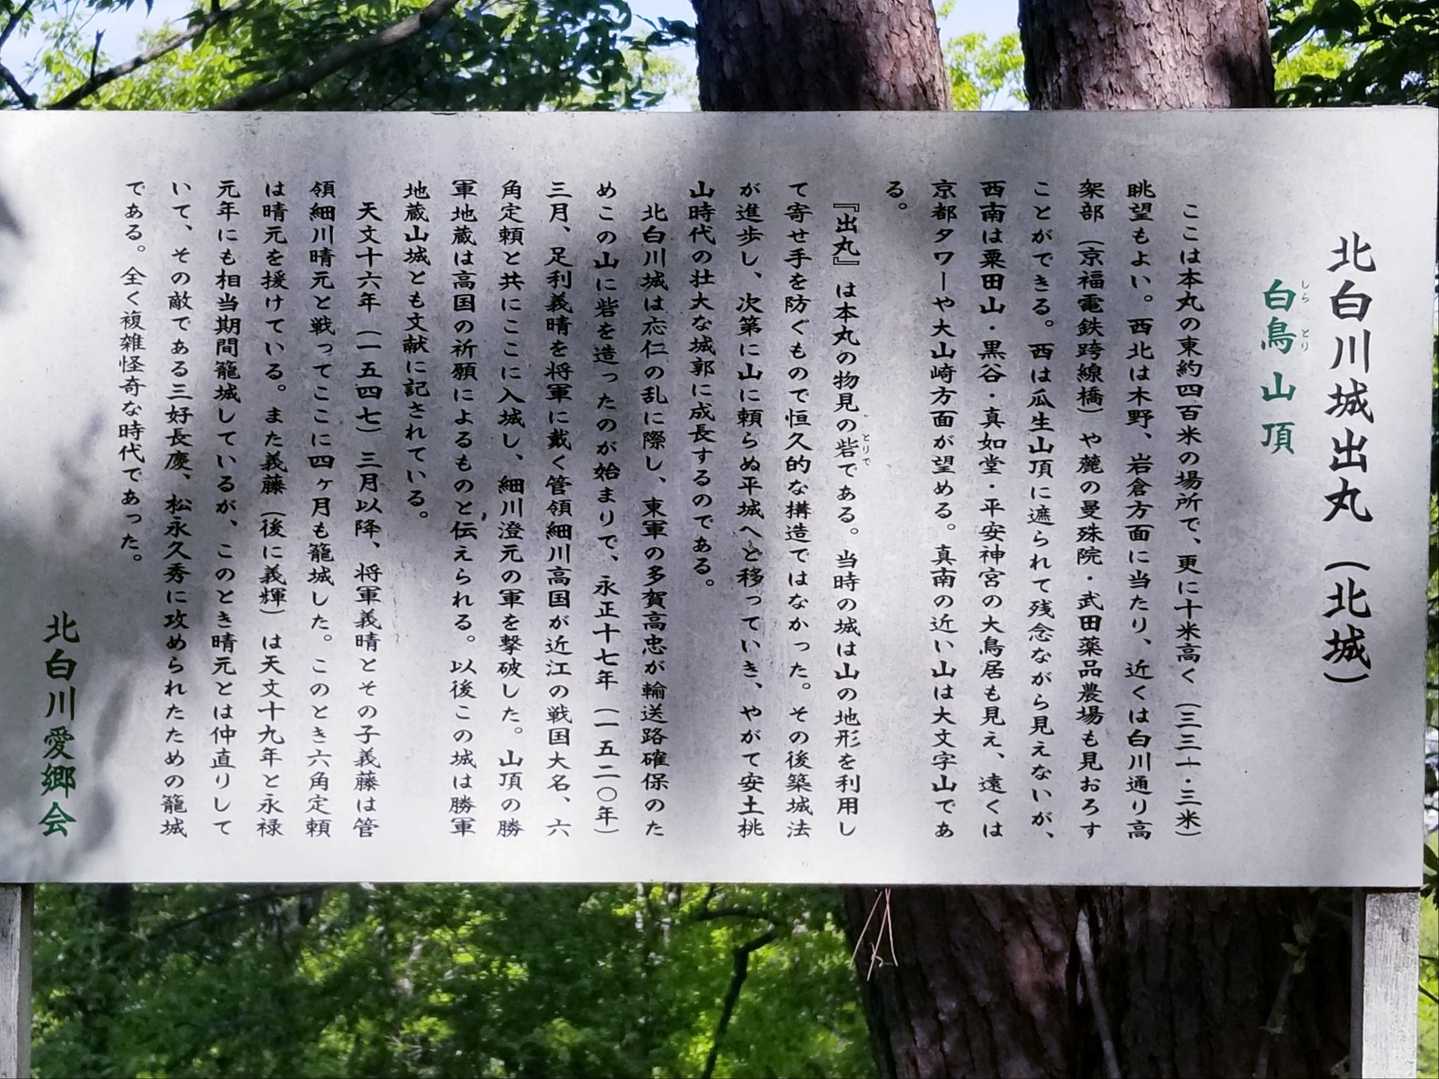 北白川城出丸（北城）
白鳥山頂
しら とり
ここは本丸の東約四百米の場所で、更に十米高く（三三一・三米）
眺望もよい。西北は木野、岩倉方面に当たり、近くは白川通り高
架部（京福電鉄跨線橋）や麓の曼殊院・武田薬品農場も見おろす
ことができる。西は瓜生山頂に遮られて残念ながら見えないが、
西南は粟田山・黒谷・真如堂・平安神宮の大鳥居も見え、遠くは
京都タワーや大山崎方面が望める。真南の近い山は大文字山であ
る。
『出丸』は本丸の物見の砦である。当時の城は山の地形を利用し
とりで
て寄せ手を防ぐもので恒久的な構造ではなかった。その後築城法
が進歩し、次第に山に頼らぬ平城へと移っていき、やがて安土桃
山時代の壮大な城郭に成長するのである。
北白川城は応仁の乱に際し、東軍の多賀高忠が輸送路確保のた
めこの山に砦を造ったのが始まりで、永正十七年（一五二〇年）
三月、足利義晴を将軍に戴く管領細川高国が近江の戦国大名、六
角定頼と共にここに入城し、細川澄元の軍を撃破した。山頂の勝
軍地蔵は高国の祈願によるものと伝えられる。以後この城は勝軍
地蔵山城とも文献に記されている。
天文十六年（一五四七）三月以降、将軍義晴とその子義藤は管
領細川晴元と戦ってここに四ヶ月も籠城した。このとき六角定頼
は晴元を援けている。また義藤（後に義輝）は天文十九年と永禄
元年にも相当期間籠城しているが、このとき晴元とは仲直りして
いて、その敵である三好長慶、松永久秀に攻められたための籠城
である。全く複雑怪奇な時代であった。
北白川愛郷会